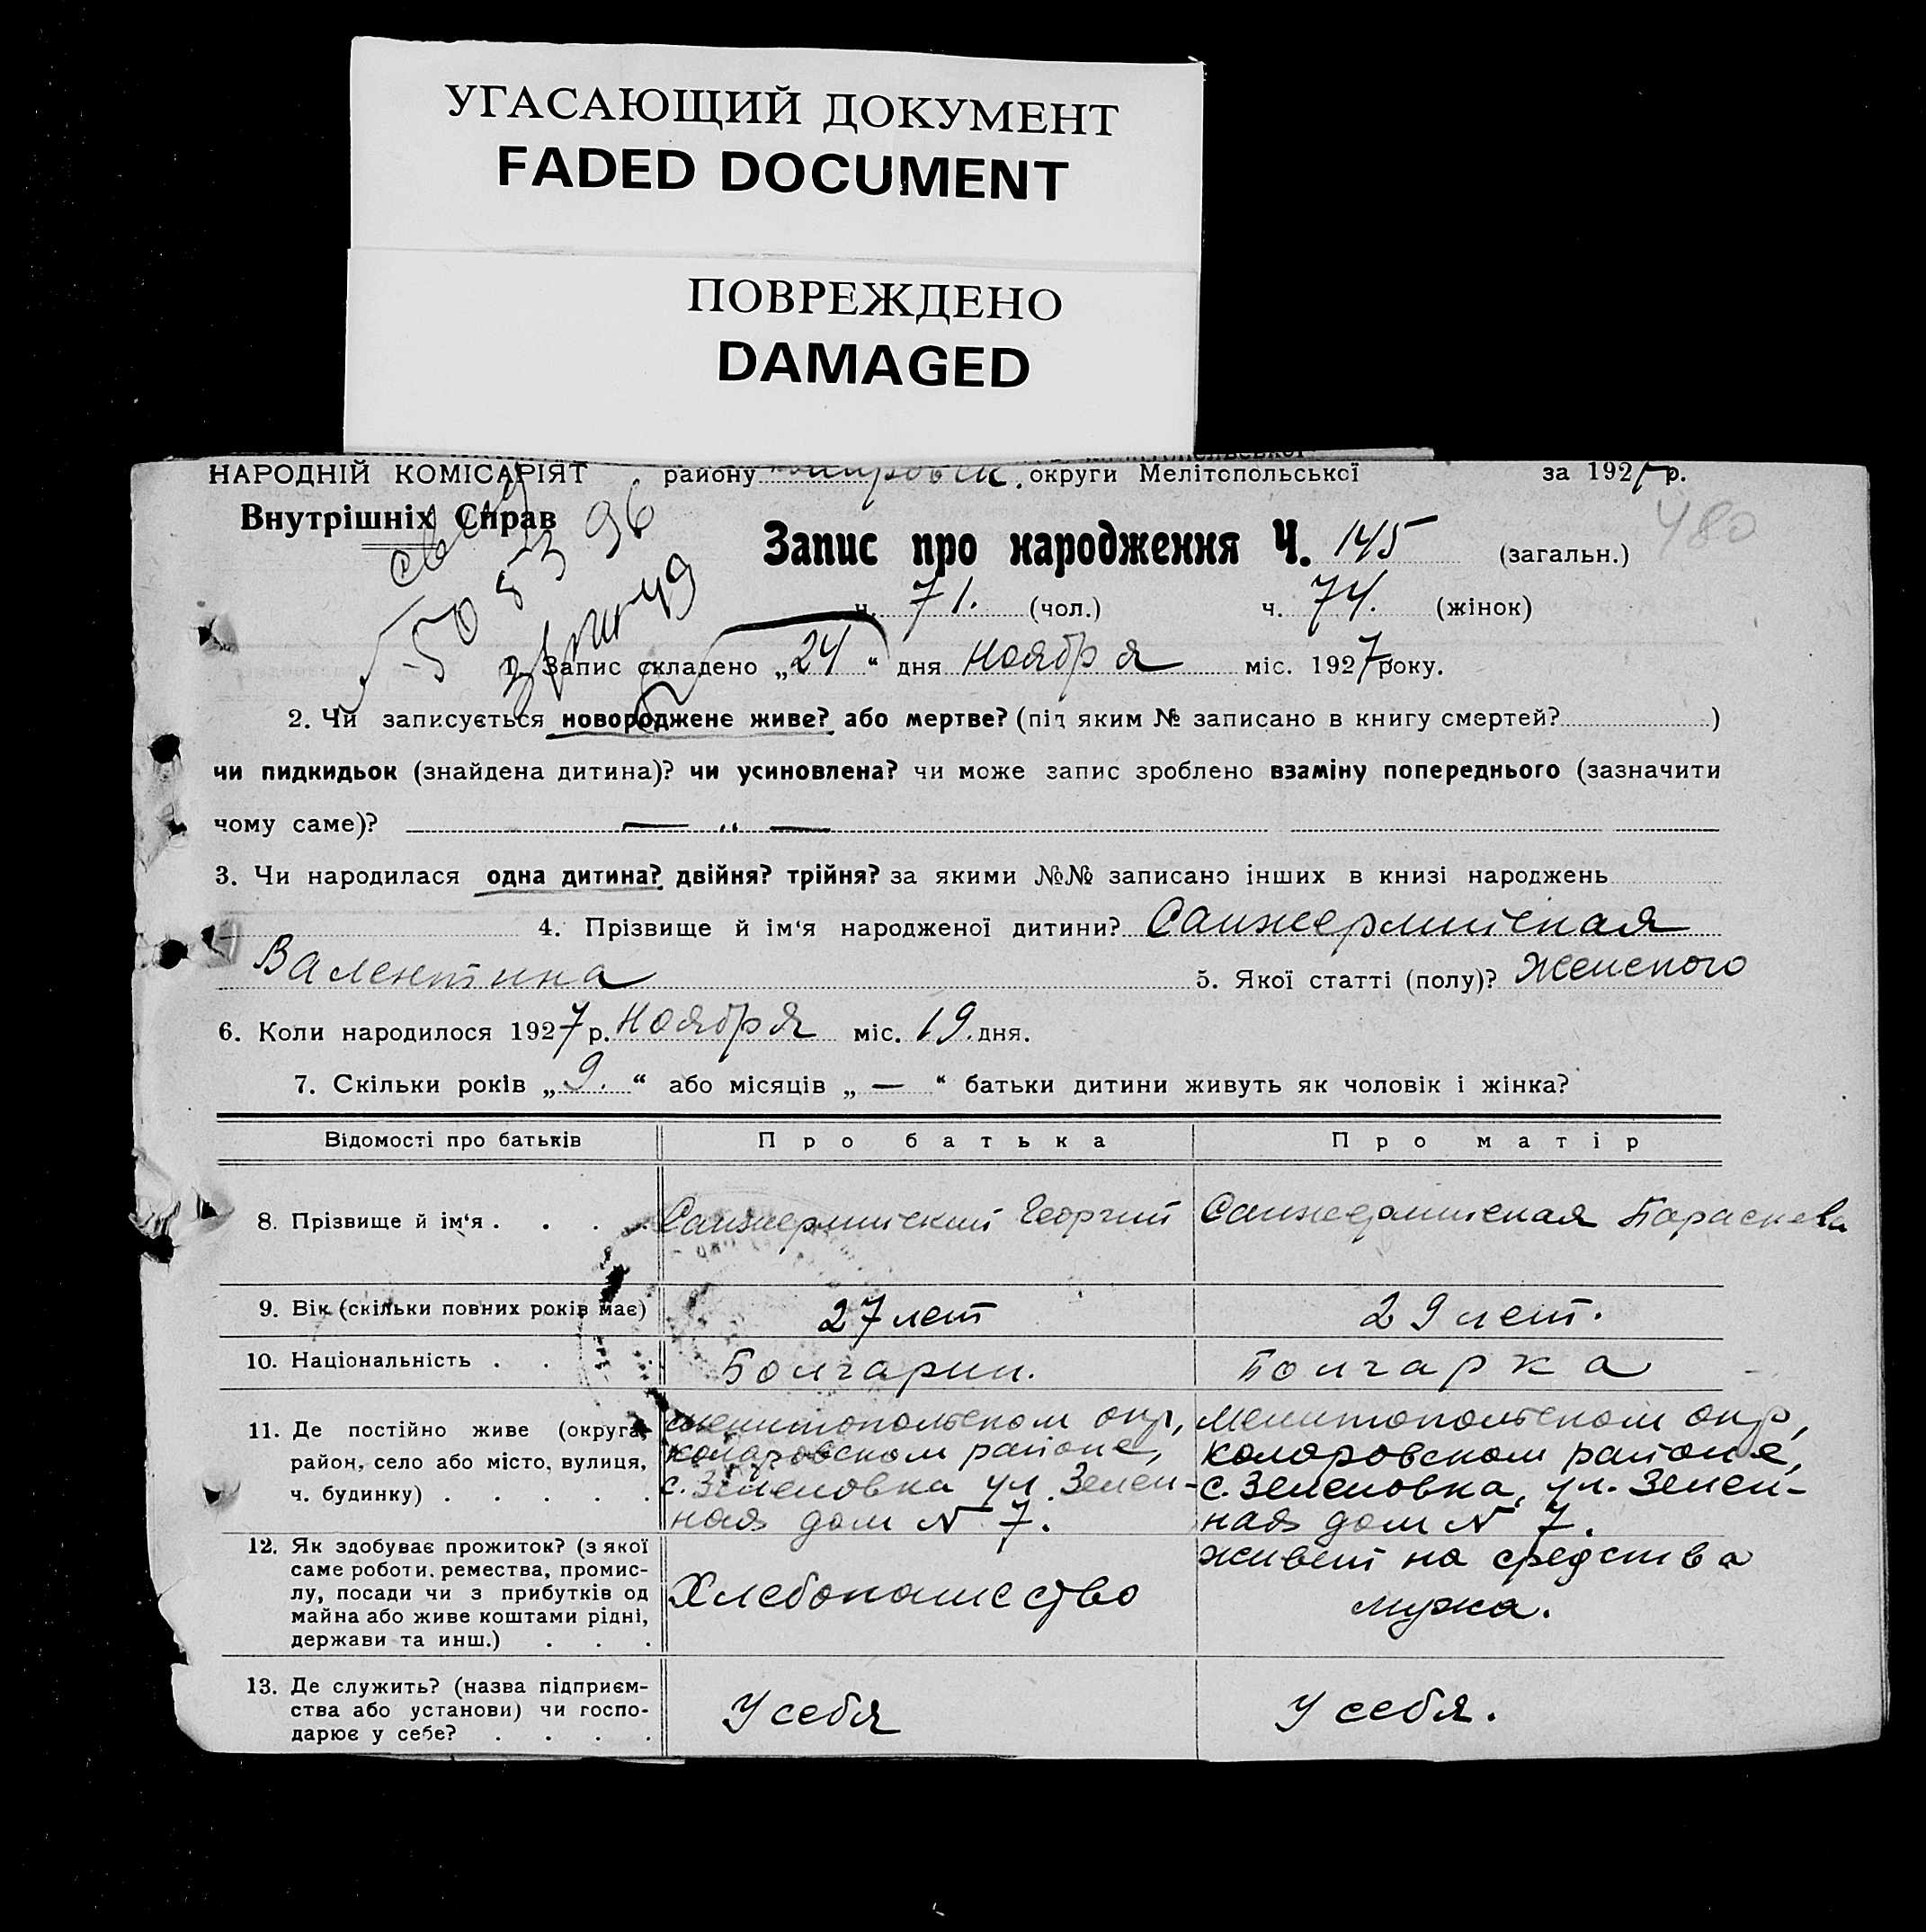 УГАСАЮЩИЙ ДОКУМЕНТ
FADED DOCUMENT
ПОВРЕЖДЕНО
DAMAGED
НАРОДНІЙ КОМІСАРІЯТ району округи Мелітопольської за 1927 р.
Внутрішніх Справ
480
Запис про народження Ч. 145 (загальн.)
ч. 71. (чол.) ч. 74. (жінок)
1. Запис складено „24“ дня ноября міс. 1927 року.
2. Чи записується новороджене живе? або мертве? (під яким № записано в книгу смертей? )
чи пидкидьок (знайдена дитина)? чи усиновлена? чи може запис зроблено взаміну попереднього (зазначити
чому саме)? — „ —
3. Чи народилася одна дитина? двійня? трійня? за якими №№ записано інших в книзі народжень
4. Прізвище й ім‘я народженої дитини? Санжерминская
Валентина 5. Якої статті (полу)? Женского
6. Коли народилося 1927 р. Ноября міс. 19. дня.
7. Скільки років „9.“ або місяців „—“ батьки дитини живуть як чоловік і жінка?
Відомості про батьків Про батька Про матір
8. Прізвище й ім‘я . . . . Санжерминский Георгий Санжерминская Параскева
9. Вік (скільки повних років має) 27 лет 29 лет.
10. Національність . . . Болгарин. Болгарка
11. Де постійно живе (округа, Мелитопольском окр, Мелитопольском окр,
район, село або місто, вулиця, коларовском районе, коларовском районе,
ч. будинку) . . . . . с. Зеленовка ул. Зелен- с. Зеленовка, ул. Зелен-
ная дом N 7. ная дом N 7.
12. Як здобуває прожиток? (з якої живет на средства
саме роботи, ремества, промис-
лу, посади чи з прибутків од Хлебопашество
майна або живе коштами рідні, мужа.
держави та инш.) . . .
13. Де служить? (назва підприєм-
ства або установи) чи госпо- У себя У себя.
дарює у себе? . . . .